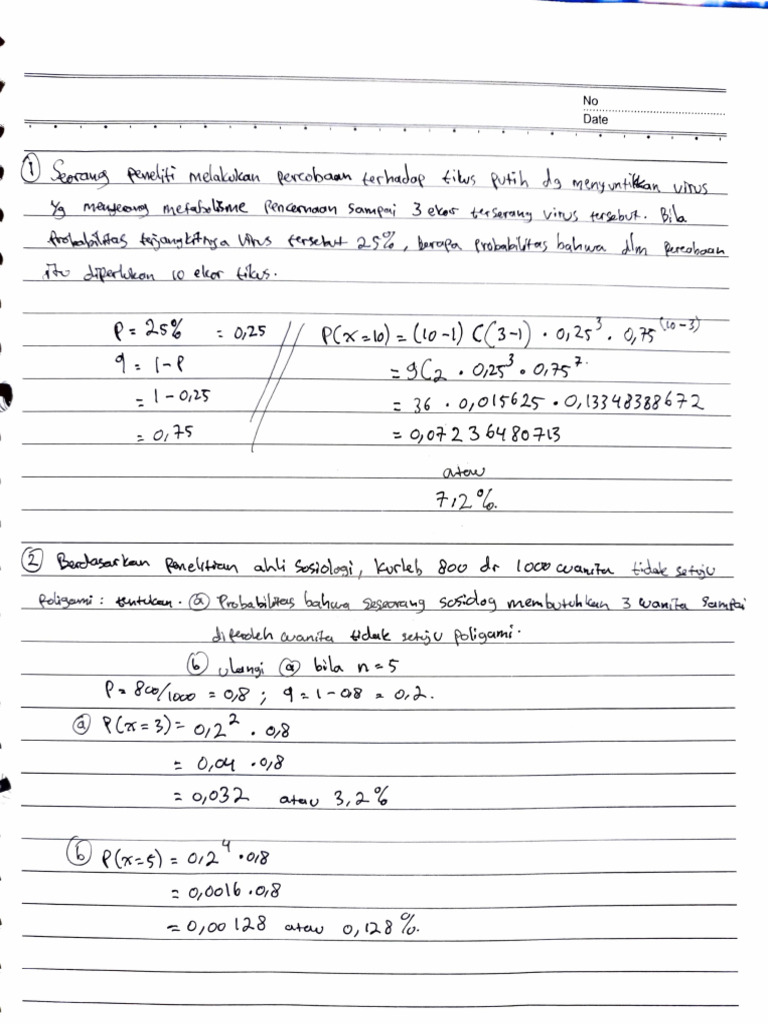 No
Date
① Seorang peneliti melakukan percobaan terhadap tikus putih dg menyuntikkan virus
yg menyerang metabolisme pencernaan sampai 3 ekor terserang virus tersebut. Bila
Probabilitas terjangkitnya virus tersebut 25%, berapa probabilitas bahwa dlm percobaan
itu diperlukan 10 ekor tikus.
P = 25% = 0,25 // P(x=10) = (10-1) C(3-1) · 0,25³ · 0,75⁽¹⁰⁻³⁾
q = 1-P = 9C2 · 0,25³ · 0,75⁷
= 1-0,25 = 36 · 0,015625 · 0,13348388672
= 0,75 = 0,07236480713
atau
7,2%.
② Berdasarkan Penelitian ahli Sosiologi, kurleb 800 dr 1000 wanita tidak setuju
poligami: tentukan. ⓐ Probabilitas bahwa seseorang sosiolog membutuhkan 3 wanita sampai
diperoleh wanita tidak setuju poligami.
ⓑ ulangi ⓐ bila n=5
P = 800/1000 = 0,8 ; q = 1-0,8 = 0,2.
ⓐ P(x=3) = 0,2² · 0,8
= 0,04 · 0,8
= 0,032 atau 3,2%
ⓑ P(x=5) = 0,2⁴ · 0,8
= 0,0016 · 0,8
= 0,00128 atau 0,128%.